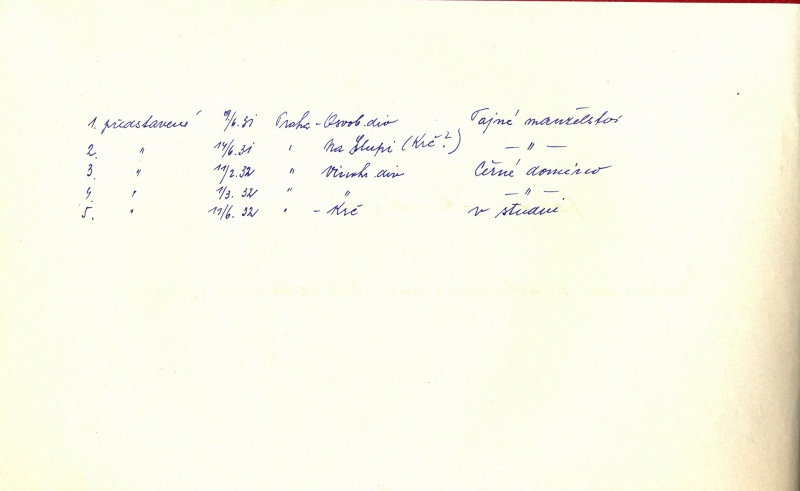 1. představené 9/6.31 Praha - Osvob. div Tajné manželství
2. " 14/6.31 " Na Slupi (Krč?) — " —
3. " 11/2.32 " Vinohr. div Černé domino
4. " 1/3.32 " " — " —
5. " 11/6.32 " - Krč v studni